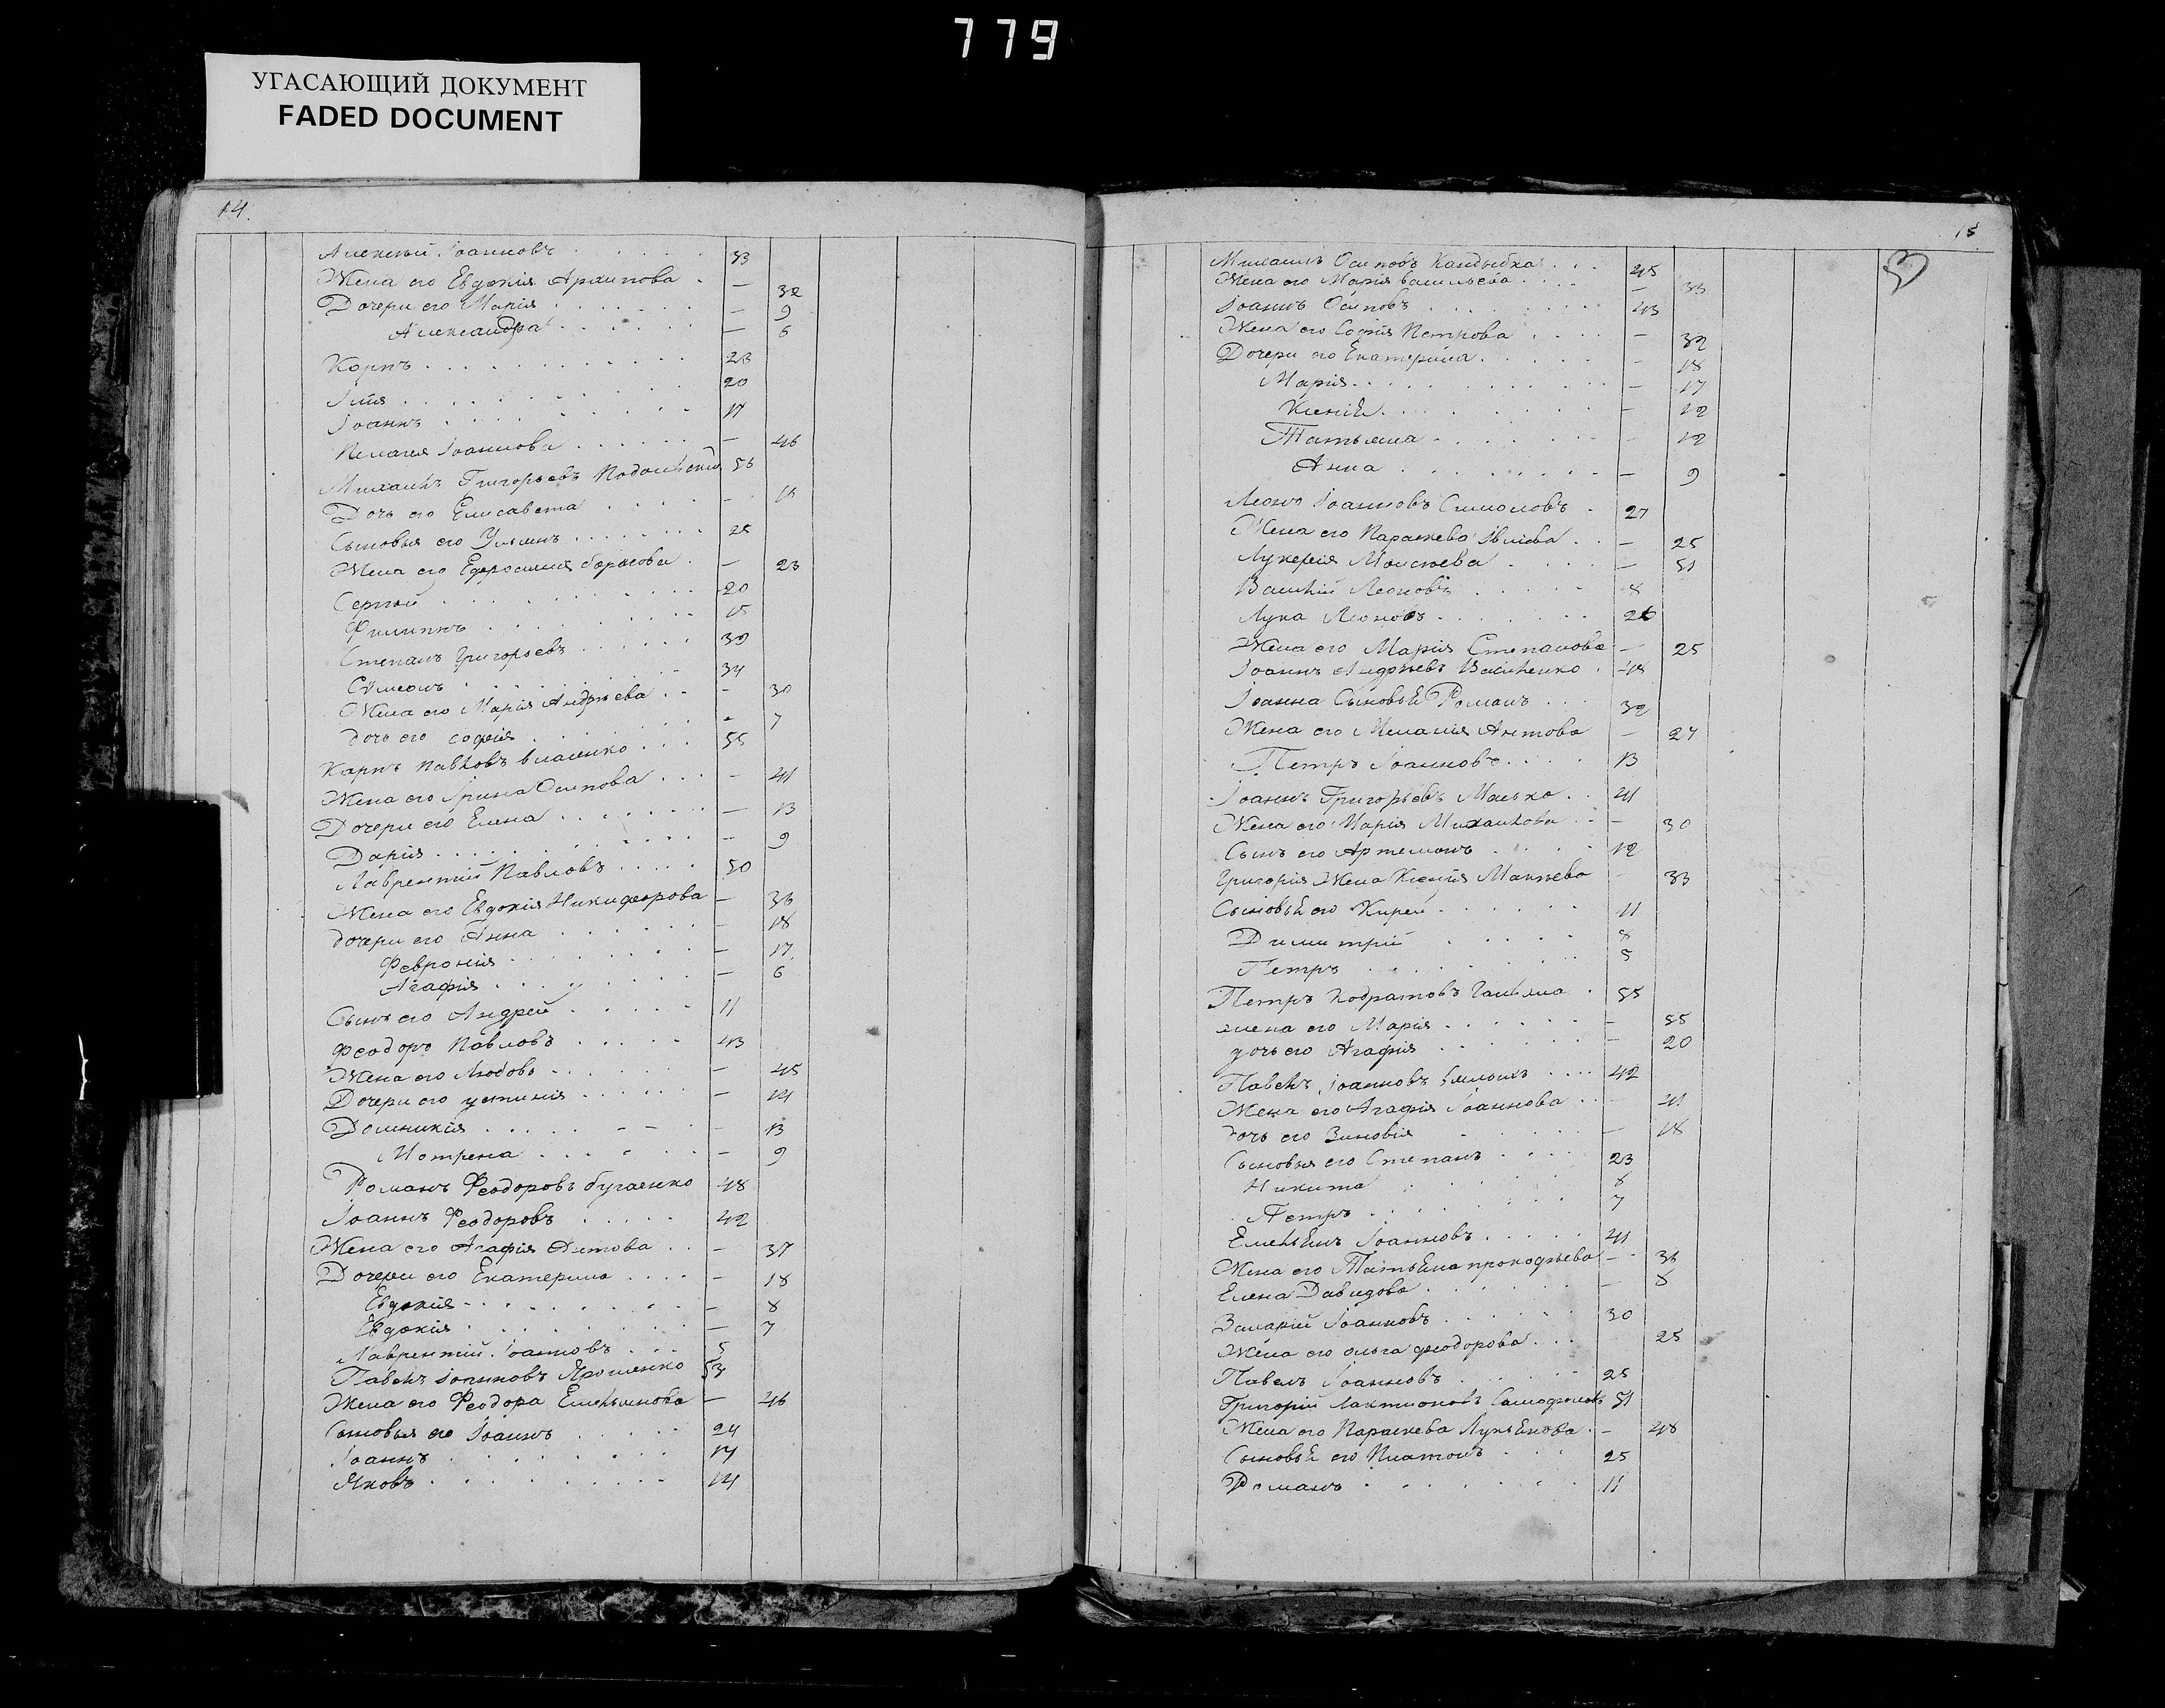 779
УГАСАЮЩИЙ ДОКУМЕНТ
FADED DOCUMENT
14.
Алексѣй Іоанновъ 33
Жена его Евдокія Архипова — 32
Дочери его Марія — 9
Александра — 6
Корпъ 23
Илія 20
Іоаннъ 17
Пелагея Іоаннова — 46
Михаилъ Григорьевъ Подольскій 56
Дочь его Елисавета —
Сыновья его Ульянъ 25
Жена его Ефросинія борисова — 23
Сергѣй 20
Филиппъ 15
Степанъ Григорьевъ 39
Сѷмеонъ 34
Жена его Марія Андрѣева — 30
дочь его софія — 7
Карпъ Павловъ власенко 55
Жена его Ірина Осипова — 41
Дочери его Елена — 13
Дарія — 9
Лаврентій Павловъ 50
Жена его Евдокія Никифорова — 36
дочери его Анна — 18
Феvронія — 17
Агафія — 6
Сынъ его Андрей 11
Феодоръ Павловъ 43
Жена его Любовь — 45
Дочери его устинія — 14
Домникія — 13
Мотрена — 9
Романъ Феодоровъ бугаенко 48
Іоаннъ Феодоровъ 42
Жена его Агафія Антова — 37
Дочери его Екатерина — 18
Евдокія — 8
Евдокія — 7
Лаврентій Іоанновъ 5
Павелъ Іоанновъ Ярошенко 53
Жена его Феодора Емельянова — 46
Сыновья его Іоаннъ 24
Іоаннъ 17
Яковъ 14
15
Михаилъ Осиповъ Кандыбка 45
Жена его Марія васильева — 33
Іоаннъ Осиповъ 43
Жена его Софія Петрова — 32
Дочери его Екатерина — 18
Марія — 17
Ксенія — 12
Татьяна — 12
Анна — 9
Леонъ Іоанновъ 27
Жена его Параскева — 25
Лукерія Моисѣева — 51
Василій Леоновъ 8
Лука Леоновъ 26
Жена его Марія Степанова — 25
Іоаннъ Андрѣевъ Василенко 48
Іоанна Сыновья Романъ 32
Жена его Меланія Антова — 27
Петръ Іоанновъ 13
Іоаннъ Григорьевъ Масько 41
Жена его Марія Михаилова — 30
Сынъ его Артемонъ 12
Григорія Жена Ксенія Макѣева — 33
Сыновья его Кирей 11
Димитрій 8
Петръ 5
Петръ Кодратовъ 55
жена его Марія — 55
дочь его Агафія — 20
Павелъ Іоанновъ 42
Жена его Агафія Іоаннова — 41
дочь его Зиновія — 18
Сыновья его Степанъ 23
Никита 8
Петръ 7
Емельянъ Іоанновъ 41
Жена его Татьяна прокофьева — 36
Елена Давидова — 8
Іоанновъ 30
Жена его ольга феодорова 25
Павелъ Іоанновъ 25
Григорій Лактионовъ 51
Жена его Параскева Лукьянова — 48
Сыновья его Платонъ 25
Романъ 11